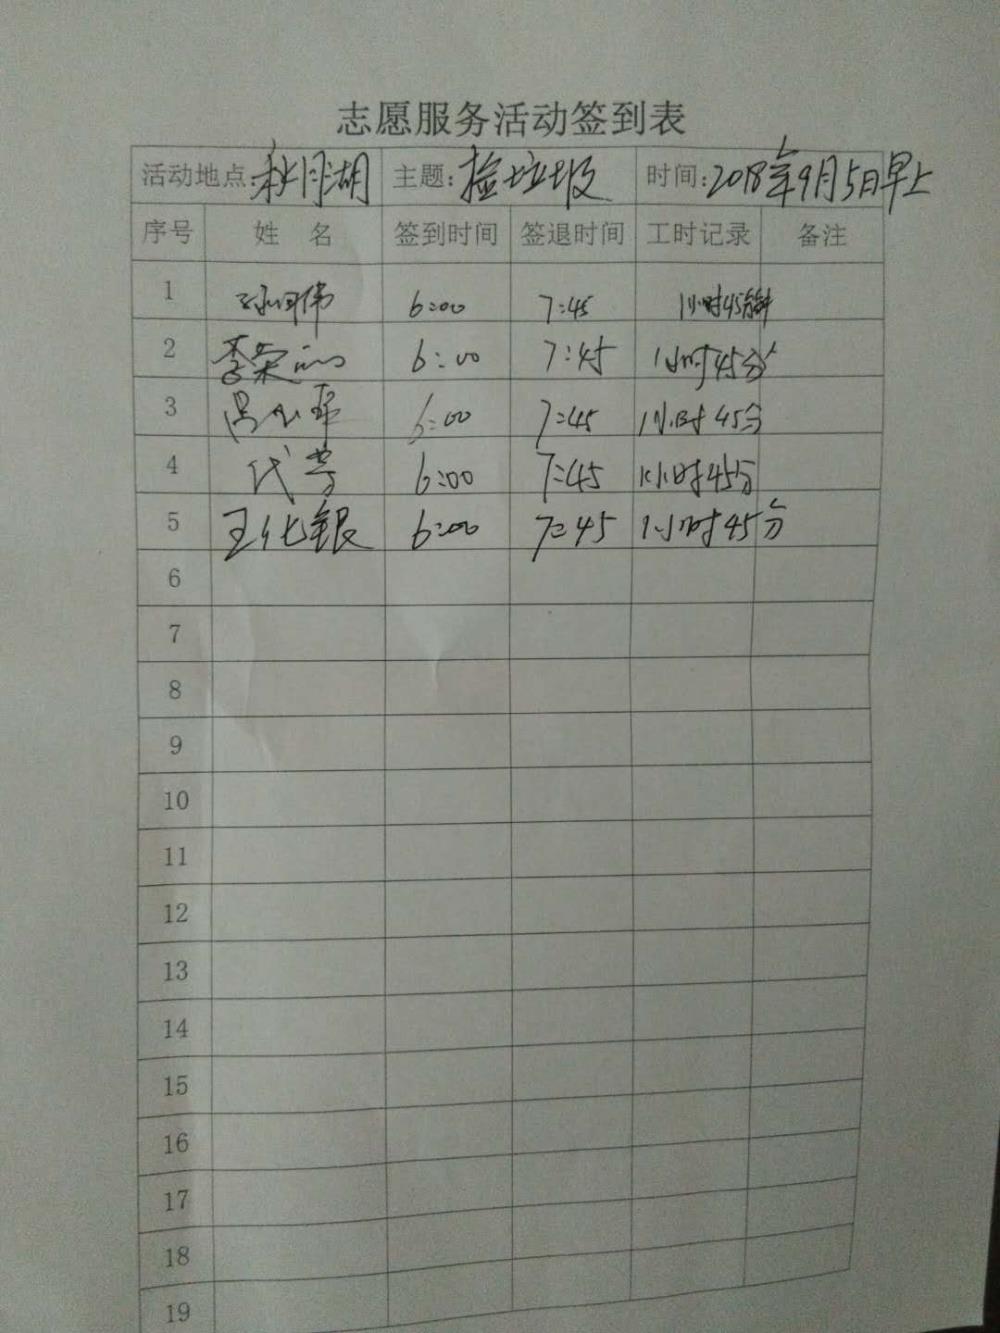 志愿服务活动签到表
活动地点:秋月湖 主题:捡垃圾 时间:2018年9月5日早上
序号 姓 名 签到时间 签退时间 工时记录 备注
1 6:00 7:45 1小时45分钟
2 李荣 6:00 7:45 1小时45分
3 6:00 7:45 1小时45分
4 代芳 6:00 7:45 1小时45分
5 王化银 6:00 7:45 1小时45分
6
7
8
9
10
11
12
13
14
15
16
17
18
19